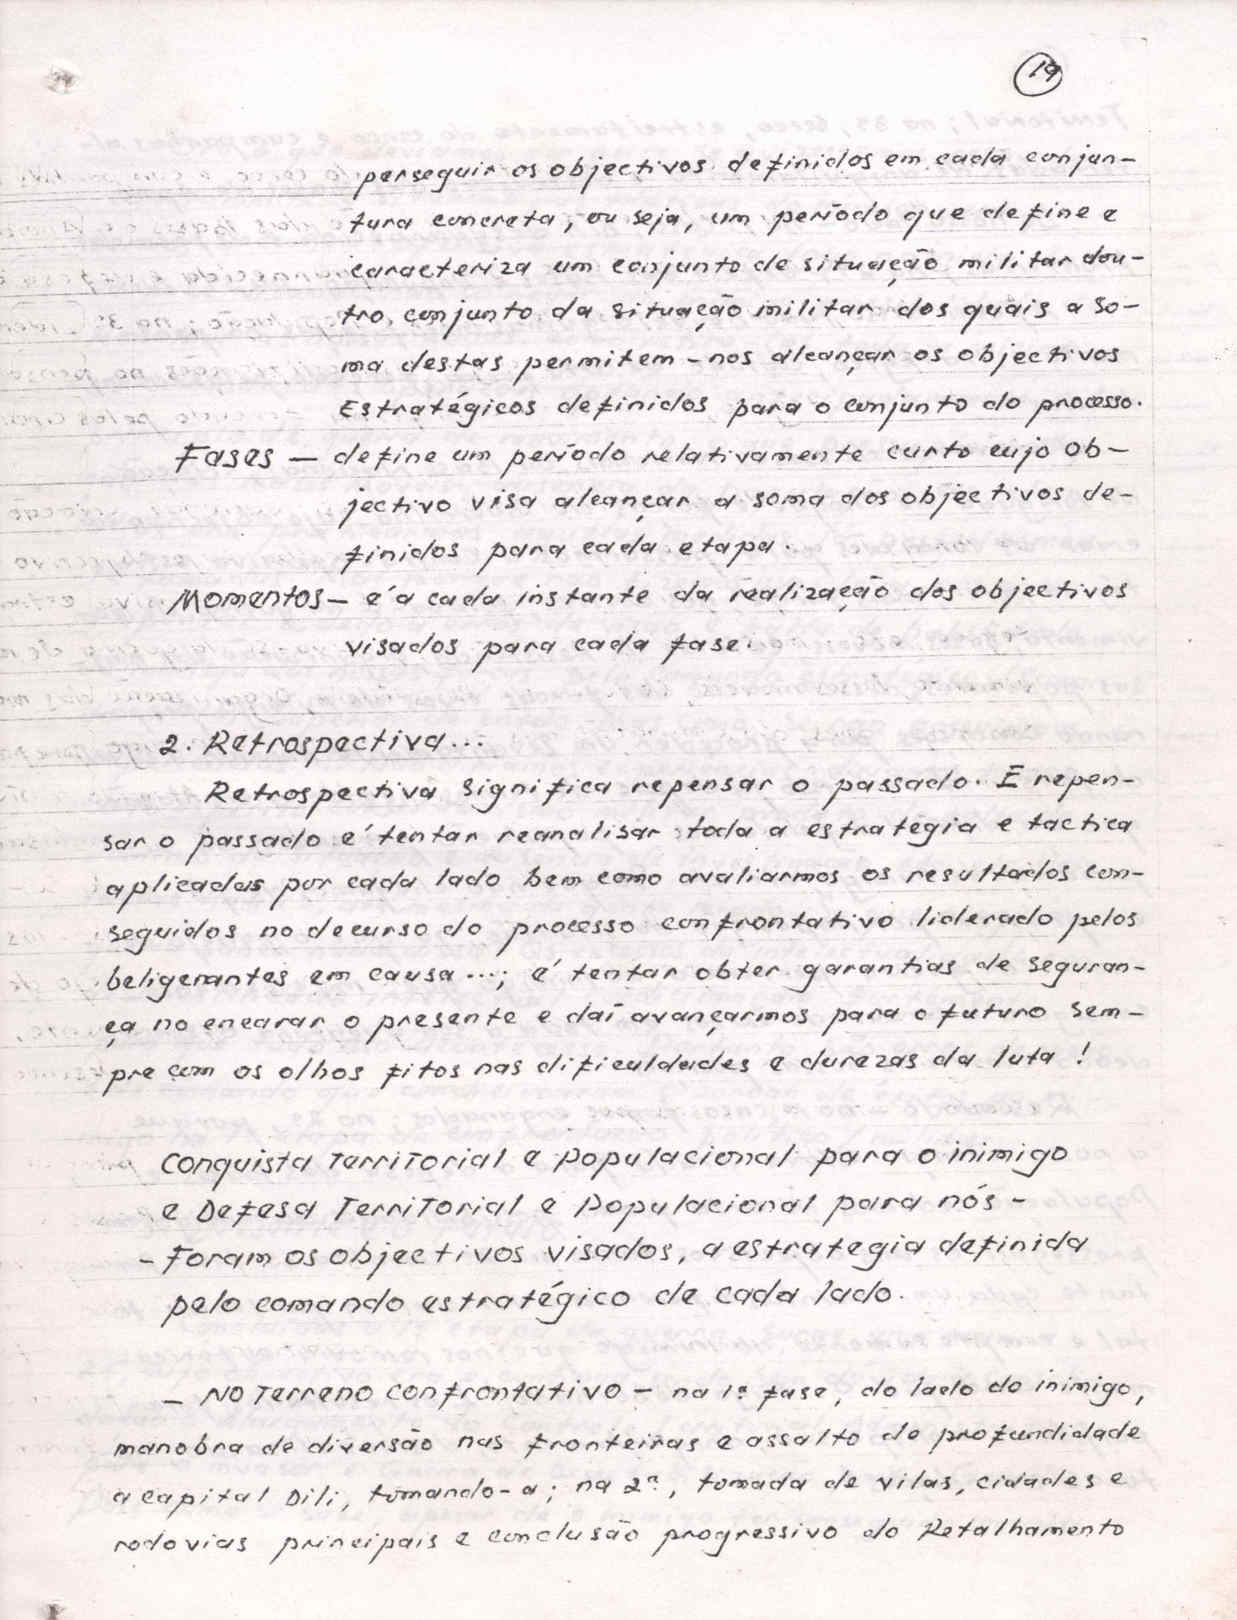 19
perseguir os objectivos definidos em cada conjun-
tura concreta, ou seja, um período que define e
caracteriza um conjunto de situação militar dou-
tro conjunto da situação militar dos quais a so-
ma destas permitem-nos alcançar os objectivos
Estratégicos definidos para o conjunto do processo.
Fases — define um período relativamente curto cujo ob-
jectivo visa alcançar a soma dos objectivos de-
finidos para cada etapa.
Momentos — é a cada instante da realização dos objectivos
visados para cada fase.
2. Retrospectiva...
Retrospectiva significa repensar o passado. E repen-
sar o passado é tentar reanalisar toda a estrategia e tactica
aplicadas por cada lado bem como avaliarmos os resultados con-
seguidos no decurso do processo confrontativo liderado pelos
beligerantes em causa...; é tentar obter garantias de seguran-
ça no encarar o presente e daí avançarmos para o futuro sem-
pre com os olhos fitos nas dificuldades e durezas da luta!
Conquista Territorial e Populacional para o inimigo
e Defesa Territorial e Populacional para nós -
- Foram os objectivos visados, a estrategia definida
pelo comando estratégico de cada lado.
- No Terreno confrontativo - na 1ª fase, do lado do inimigo,
manobra de diversão nas fronteiras e assalto de profundidade
a capital Dili, tomando-a; na 2ª, tomada de vilas, cidades e
rodovias principais e conclusão progressivo do Retalhamento